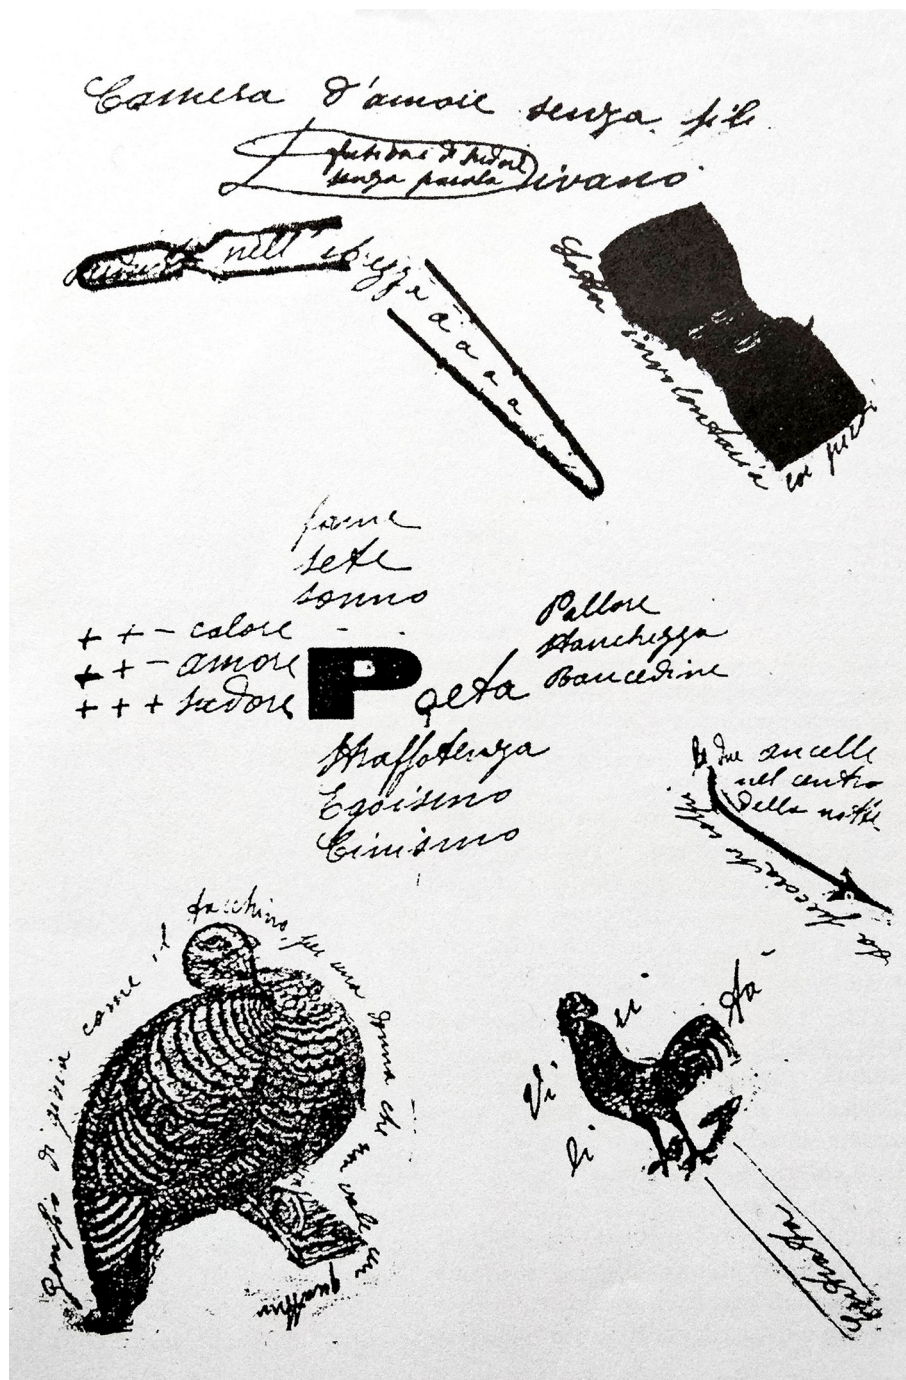 Camera d'amore senza fili
fusione di sudore
senza parola
Divano
nell' ebrezza a a a a a
Lotta involontaria
fame
sete
sonno
+ + - calore
+ + - amore
+ + + sudore
Poeta
Pallore
Stanchezza
Baucedine
Strafottenza
Egoismo
Cinismo
Le due ancelle
nel centro
della notte
gonfio di gioia come il tacchino per una donna che non vale un quattrin
Vi ri li tà